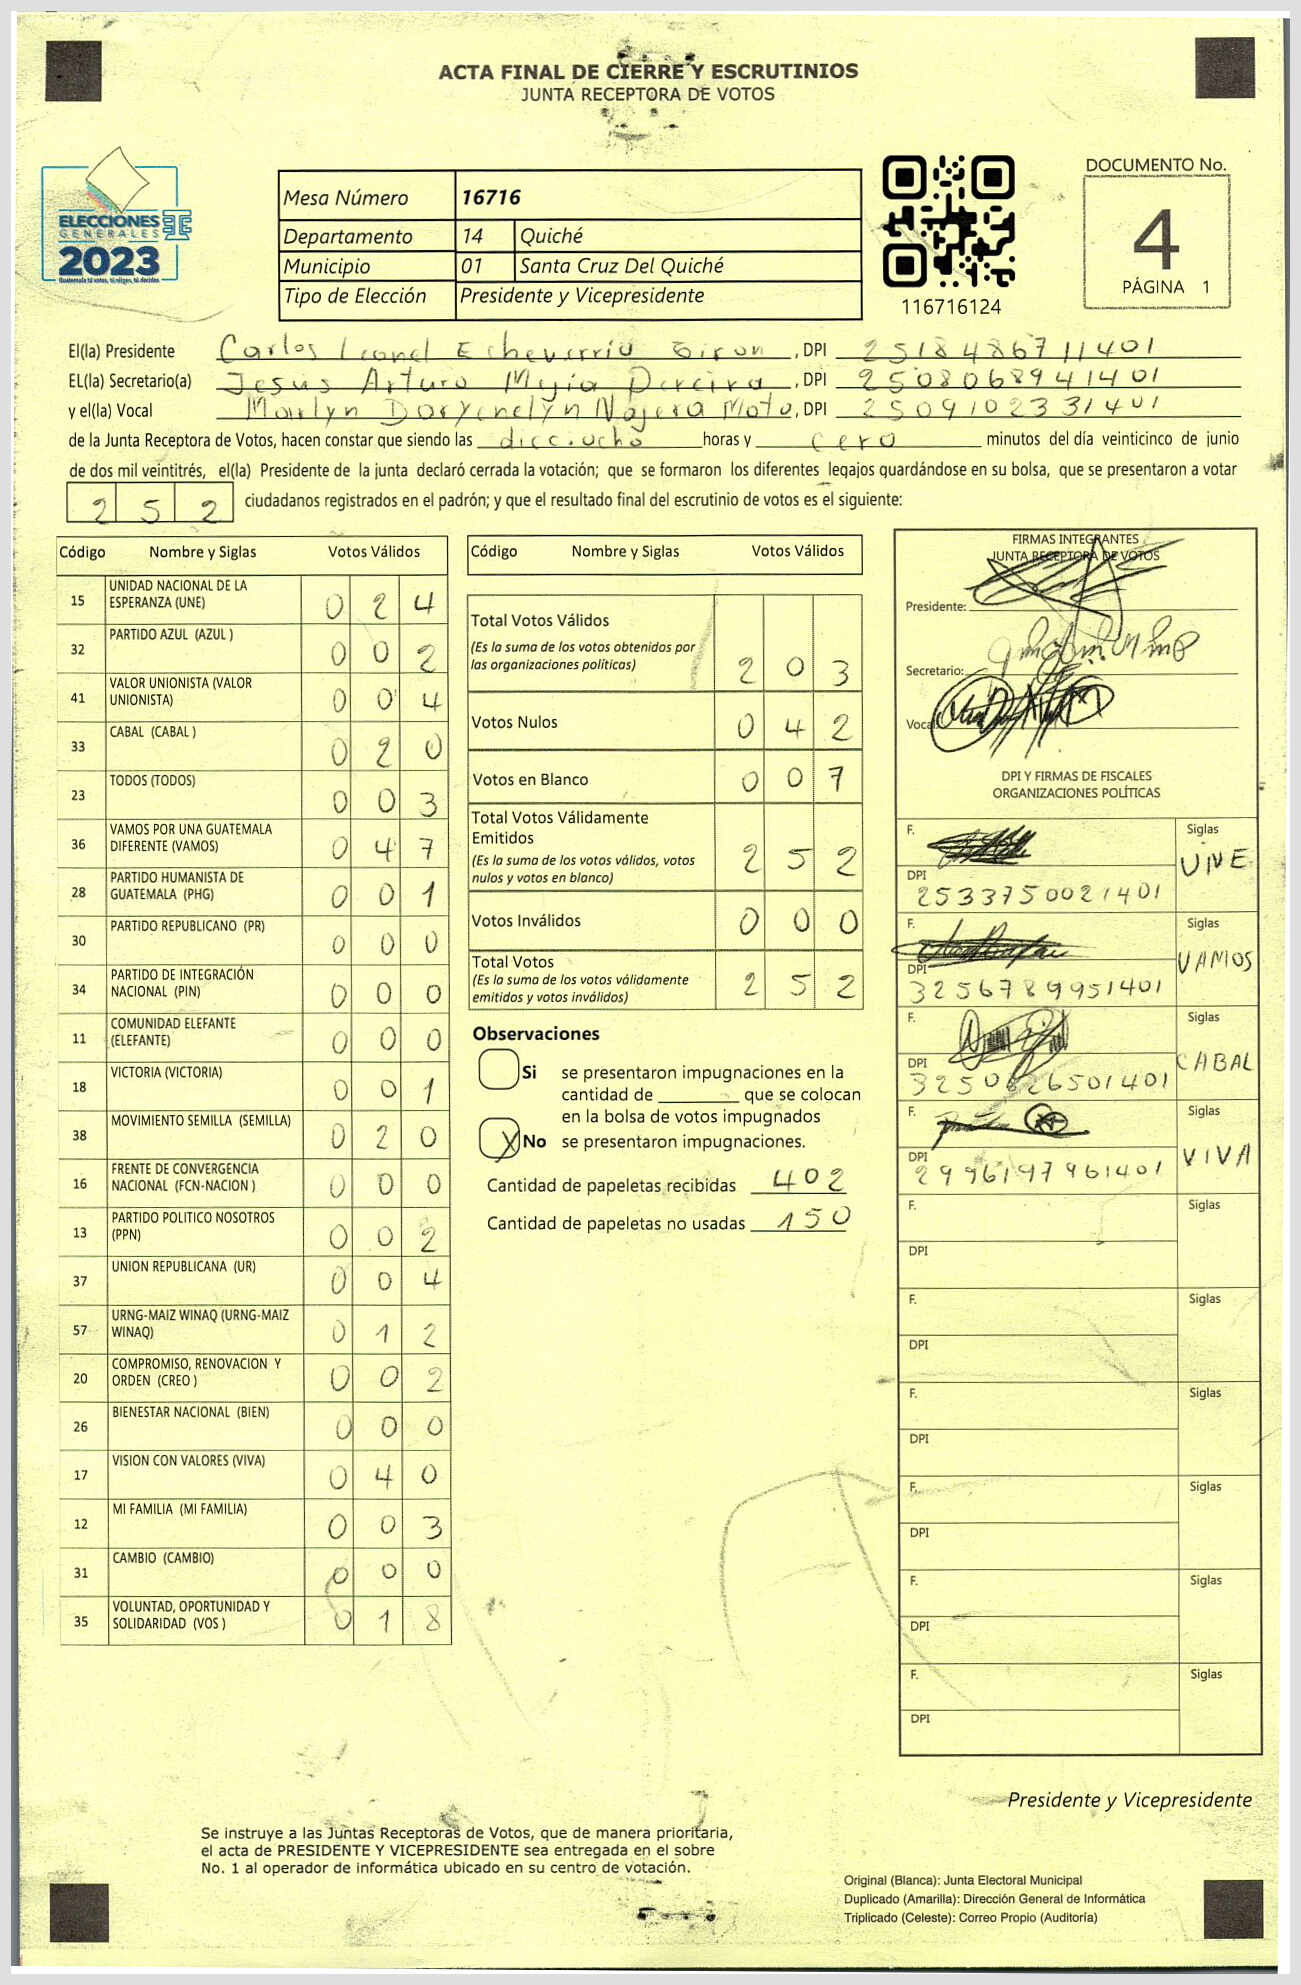 ACTA FINAL DE CIERRE Y ESCRUTINIOS
JUNTA RECEPTORA DE VOTOS
ELECCIONES
GENERALES
2023
Guatemala tú votas, tú eliges, tú decides
Mesa Número 16716
Departamento 14 Quiché
Municipio 01 Santa Cruz Del Quiché
Tipo de Elección Presidente y Vicepresidente
116716124
DOCUMENTO No.
4
PÁGINA 1
El(la) Presidente Carlos Leonel Echeverría Giron, DPI 2518486711401
EL(la) Secretario(a) Jesus Arturo Mejía Pereira, DPI 2508068941401
y el(la) Vocal Marlyn Najera Mota, DPI 2509102331401
de la Junta Receptora de Votos, hacen constar que siendo las dieciocho horas y cero minutos del día veinticinco de junio
de dos mil veintitrés, el(la) Presidente de la junta declaró cerrada la votación; que se formaron los diferentes legajos quardándose en su bolsa, que se presentaron a votar
252 ciudadanos registrados en el padrón; y que el resultado final del escrutinio de votos es el siguiente:
Código Nombre y Siglas Votos Válidos
15 UNIDAD NACIONAL DE LA ESPERANZA (UNE) 024
32 PARTIDO AZUL (AZUL ) 002
41 VALOR UNIONISTA (VALOR UNIONISTA) 004
33 CABAL (CABAL ) 020
23 TODOS (TODOS) 003
36 VAMOS POR UNA GUATEMALA DIFERENTE (VAMOS) 047
28 PARTIDO HUMANISTA DE GUATEMALA (PHG) 001
30 PARTIDO REPUBLICANO (PR) 000
34 PARTIDO DE INTEGRACIÓN NACIONAL (PIN) 000
11 COMUNIDAD ELEFANTE (ELEFANTE) 000
18 VICTORIA (VICTORIA) 001
38 MOVIMIENTO SEMILLA (SEMILLA) 020
16 FRENTE DE CONVERGENCIA NACIONAL (FCN-NACION ) 000
13 PARTIDO POLITICO NOSOTROS (PPN) 002
37 UNION REPUBLICANA (UR) 004
57 URNG-MAIZ WINAQ (URNG-MAIZ WINAQ) 012
20 COMPROMISO, RENOVACION Y ORDEN (CREO ) 002
26 BIENESTAR NACIONAL (BIEN) 000
17 VISION CON VALORES (VIVA) 040
12 MI FAMILIA (MI FAMILIA) 003
31 CAMBIO (CAMBIO) 000
35 VOLUNTAD, OPORTUNIDAD Y SOLIDARIDAD (VOS ) 018
Código Nombre y Siglas Votos Válidos
Total Votos Válidos 203
(Es la suma de los votos obtenidos por
las organizaciones políticas)
Votos Nulos 042
Votos en Blanco 007
Total Votos Válidamente
Emitidos 252
(Es la suma de los votos válidos, votos
nulos y votos en blanco)
Votos Inválidos 000
Total Votos 252
(Es la suma de los votos válidamente
emitidos y votos inválidos)
Observaciones
Si se presentaron impugnaciones en la
cantidad de ________ que se colocan
en la bolsa de votos impugnados
X No se presentaron impugnaciones.
Cantidad de papeletas recibidas 402
Cantidad de papeletas no usadas 150
FIRMAS INTEGRANTES
JUNTA RECEPTORA DE VOTOS
Presidente:
Secretario:
Vocal
DPI Y FIRMAS DE FISCALES
ORGANIZACIONES POLÍTICAS
F. Siglas UNE
DPI 2533750021401
F. Siglas VAMOS
DPI 3256789951401
F. Siglas CABAL
DPI 3250826501401
F. Siglas VIVA
DPI 2996197961401
F. Siglas
DPI
F. Siglas
DPI
F. Siglas
DPI
F. Siglas
DPI
F. Siglas
DPI
F. Siglas
DPI
Presidente y Vicepresidente
Se instruye a las Juntas Receptoras de Votos, que de manera prioritaria,
el acta de PRESIDENTE Y VICEPRESIDENTE sea entregada en el sobre
No. 1 al operador de informática ubicado en su centro de votación.
Original (Blanca): Junta Electoral Municipal
Duplicado (Amarilla): Dirección General de Informática
Triplicado (Celeste): Correo Propio (Auditoría)